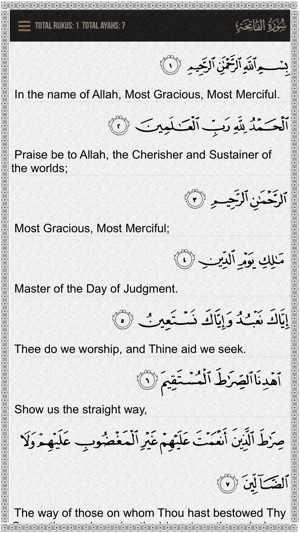 TOTAL RUKUS: 1 TOTAL AYAHS: 7 سُورَةُ الفَاتِحَةِ
بِسْمِ ٱللَّهِ ٱلرَّحْمَٰنِ ٱلرَّحِيمِ ١
In the name of Allah, Most Gracious, Most Merciful.
ٱلْحَمْدُ لِلَّهِ رَبِّ ٱلْعَٰلَمِينَ ٢
Praise be to Allah, the Cherisher and Sustainer of
the worlds;
ٱلرَّحْمَٰنِ ٱلرَّحِيمِ ٣
Most Gracious, Most Merciful;
مَٰلِكِ يَوْمِ ٱلدِّينِ ٤
Master of the Day of Judgment.
إِيَّاكَ نَعْبُدُ وَإِيَّاكَ نَسْتَعِينُ ٥
Thee do we worship, and Thine aid we seek.
ٱهْدِنَا ٱلصِّرَٰطَ ٱلْمُسْتَقِيمَ ٦
Show us the straight way,
صِرَٰطَ ٱلَّذِينَ أَنْعَمْتَ عَلَيْهِمْ غَيْرِ ٱلْمَغْضُوبِ عَلَيْهِمْ وَلَا
ٱلضَّآلِّينَ ٧
The way of those on whom Thou hast bestowed Thy